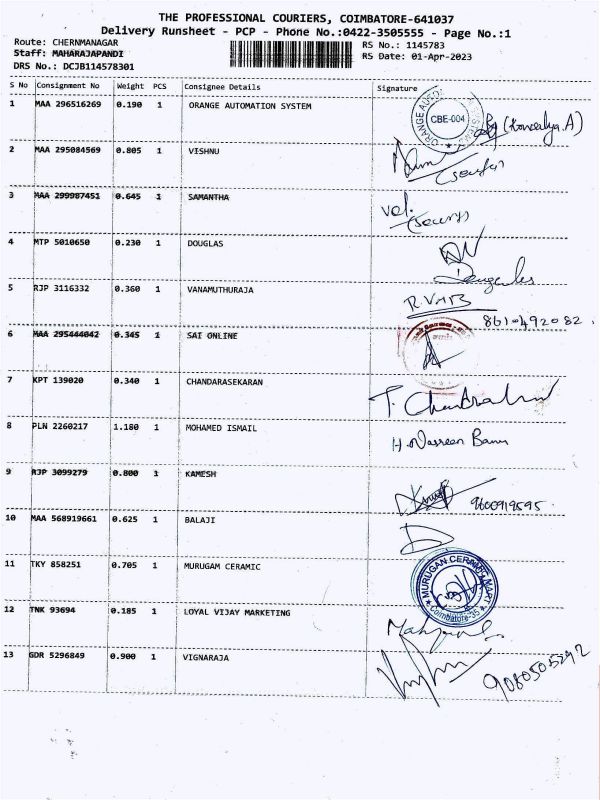 THE PROFESSIONAL COURIERS, COIMBATORE-641037
Delivery Runsheet - PCP - Phone No.:0422-3505555 - Page No.:1
Route: CHERNMANAGAR
Staff: MAHARAJAPANDI
DRS No.: DCJB114578301
RS No.: 1145783
RS Date: 01-Apr-2023
S No Consignment No Weight PCS Consignee Details Signature
1 MAA 296516269 0.190 1 ORANGE AUTOMATION SYSTEM CBE-004 (Kowsalya.A)
2 MAA 295084569 0.805 1 VISHNU
3 MAA 299987451 0.645 1 SAMANTHA vel.
4 MTP 5010650 0.230 1 DOUGLAS Douglas
5 RJP 3116332 0.360 1 VANAMUTHURAJA
8610492082.
6 MAA 295444042 0.345 1 SAI ONLINE
7 KPT 139020 0.340 1 CHANDARASEKARAN
8 PLN 2260217 1.180 1 MOHAMED ISMAIL H.Nasreen Banu
9 RJP 3099279 0.800 1 KAMESH 9600919595
10 MAA 568919661 0.625 1 BALAJI
11 TKY 858251 0.705 1 MURUGAM CERAMIC MURUGAN CERAMIC MART Coimbatore-35
12 TNK 93694 0.185 1 LOYAL VIJAY MARKETING
13 GDR 5296849 0.900 1 VIGNARAJA 9080505292